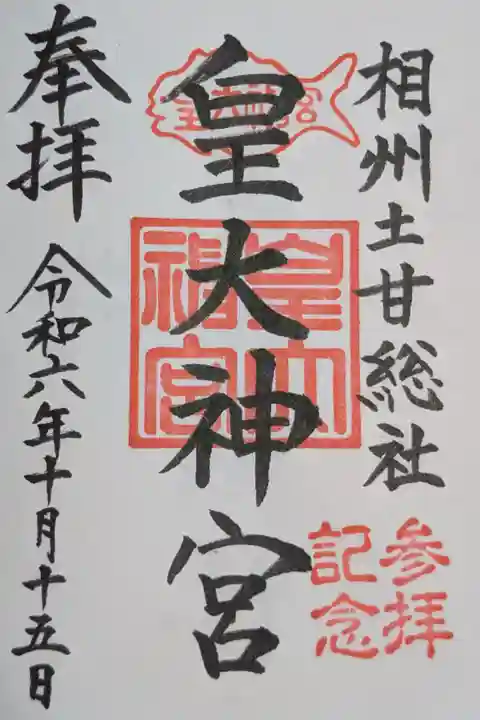 相州土甘総社
参拝
記念
皇大神宮
皇大神宮
皇大
神宮
奉拝
令和六年十月十五日